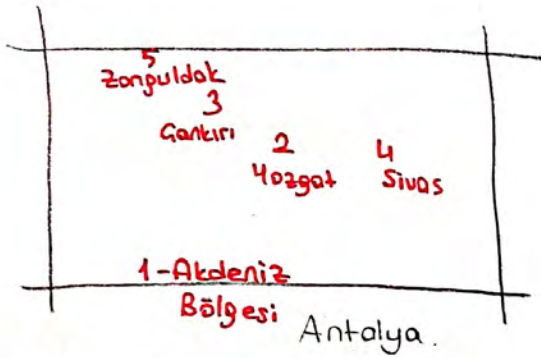 5
Zonguldak
3
Çankırı
2
Yozgat
4
Sivas
1-Akdeniz
Bölgesi
Antalya.